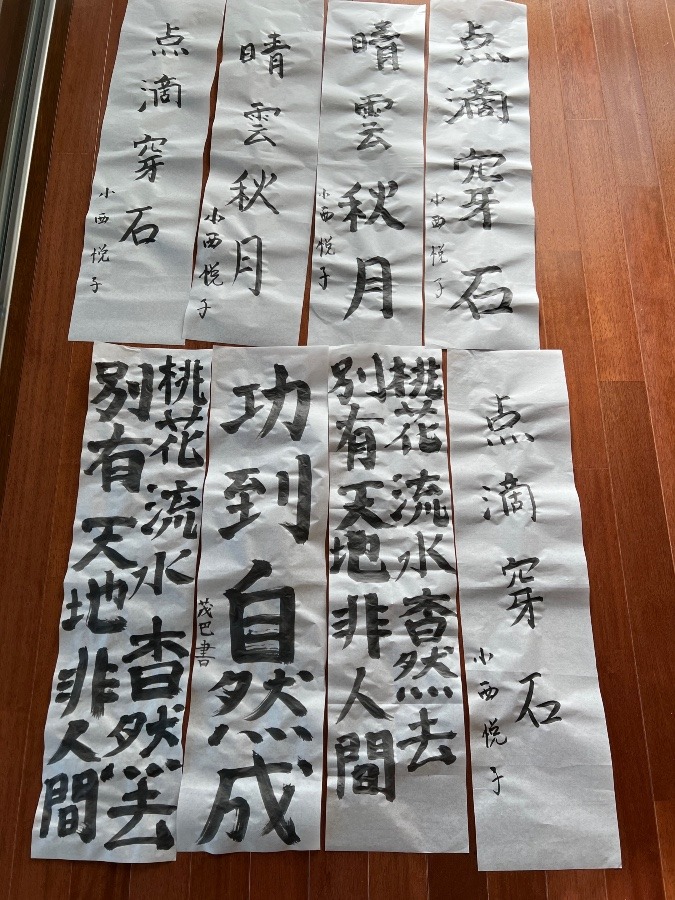 点滴穿石
小西悦子
晴雲秋月
小西悦子
晴雲秋月
小西悦子
点滴穿石
小西悦子
桃花流水杳然去
別有天地非人間
功到自然成
茂巴書
桃花流水杳然去
別有天地非人間
点滴穿石
小西悦子